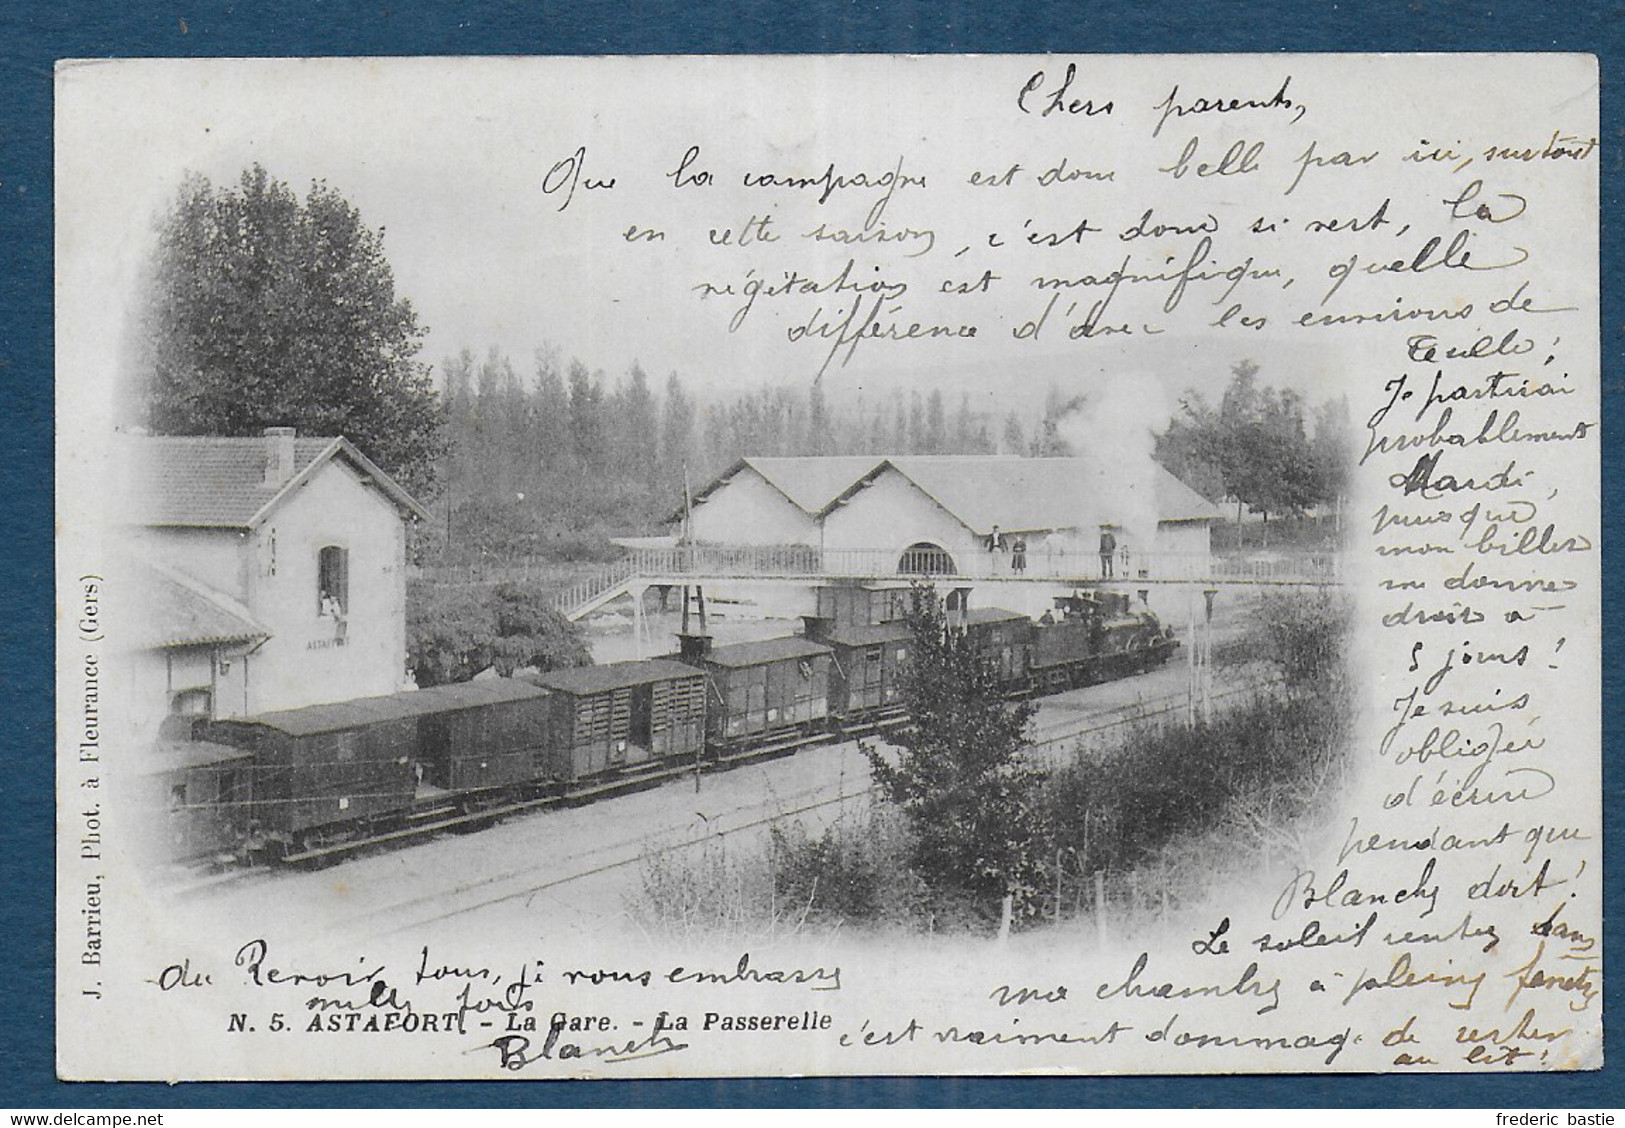 Chers parents,
Que la campagne est donc belle par ici, surtout
en cette saison, c'est donc si vert, la
végétation est magnifique, quelle
différence d'avec les environs de
Je partirai
probablement
Mardi,
puisque
mon billet
me donne
droit à
5 jours !
Je suis
obligée
d'écrire
pendant que
Blanche dort !
Le soleil rentre dans
ma chambre à pleine fenêtre
c'est vraiment dommage de rester
au lit !
Au Revoir tous, je vous embrasse
mille fois
Blanche
N. 5. ASTAFORT. - La Gare. - La Passerelle
J. Barrieu, Phot. à Fleurance (Gers)
ASTAFFORT
frederic bastie